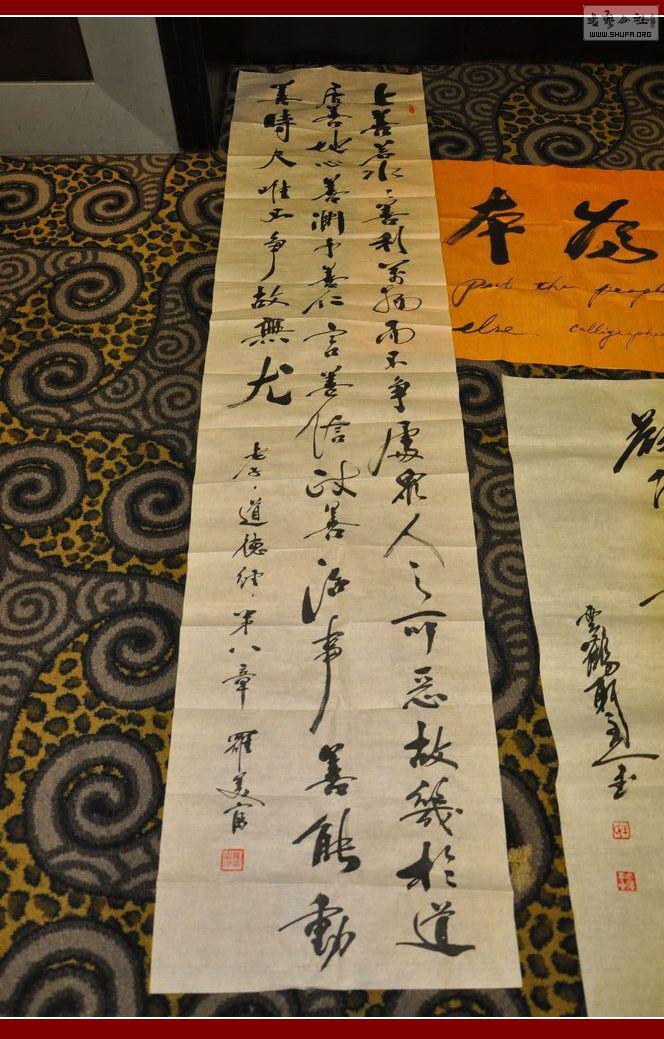 书艺公社
WWW.SHUFA.ORG
上善若水〻善利萬物而不爭處眾人之所惡故幾於道
居善地心善淵予善仁言善信政善治事善能動
善時夫唯不爭故無尤
老子·道德经·第八章 羅美富
為本
Put the people
else. Calligraphe